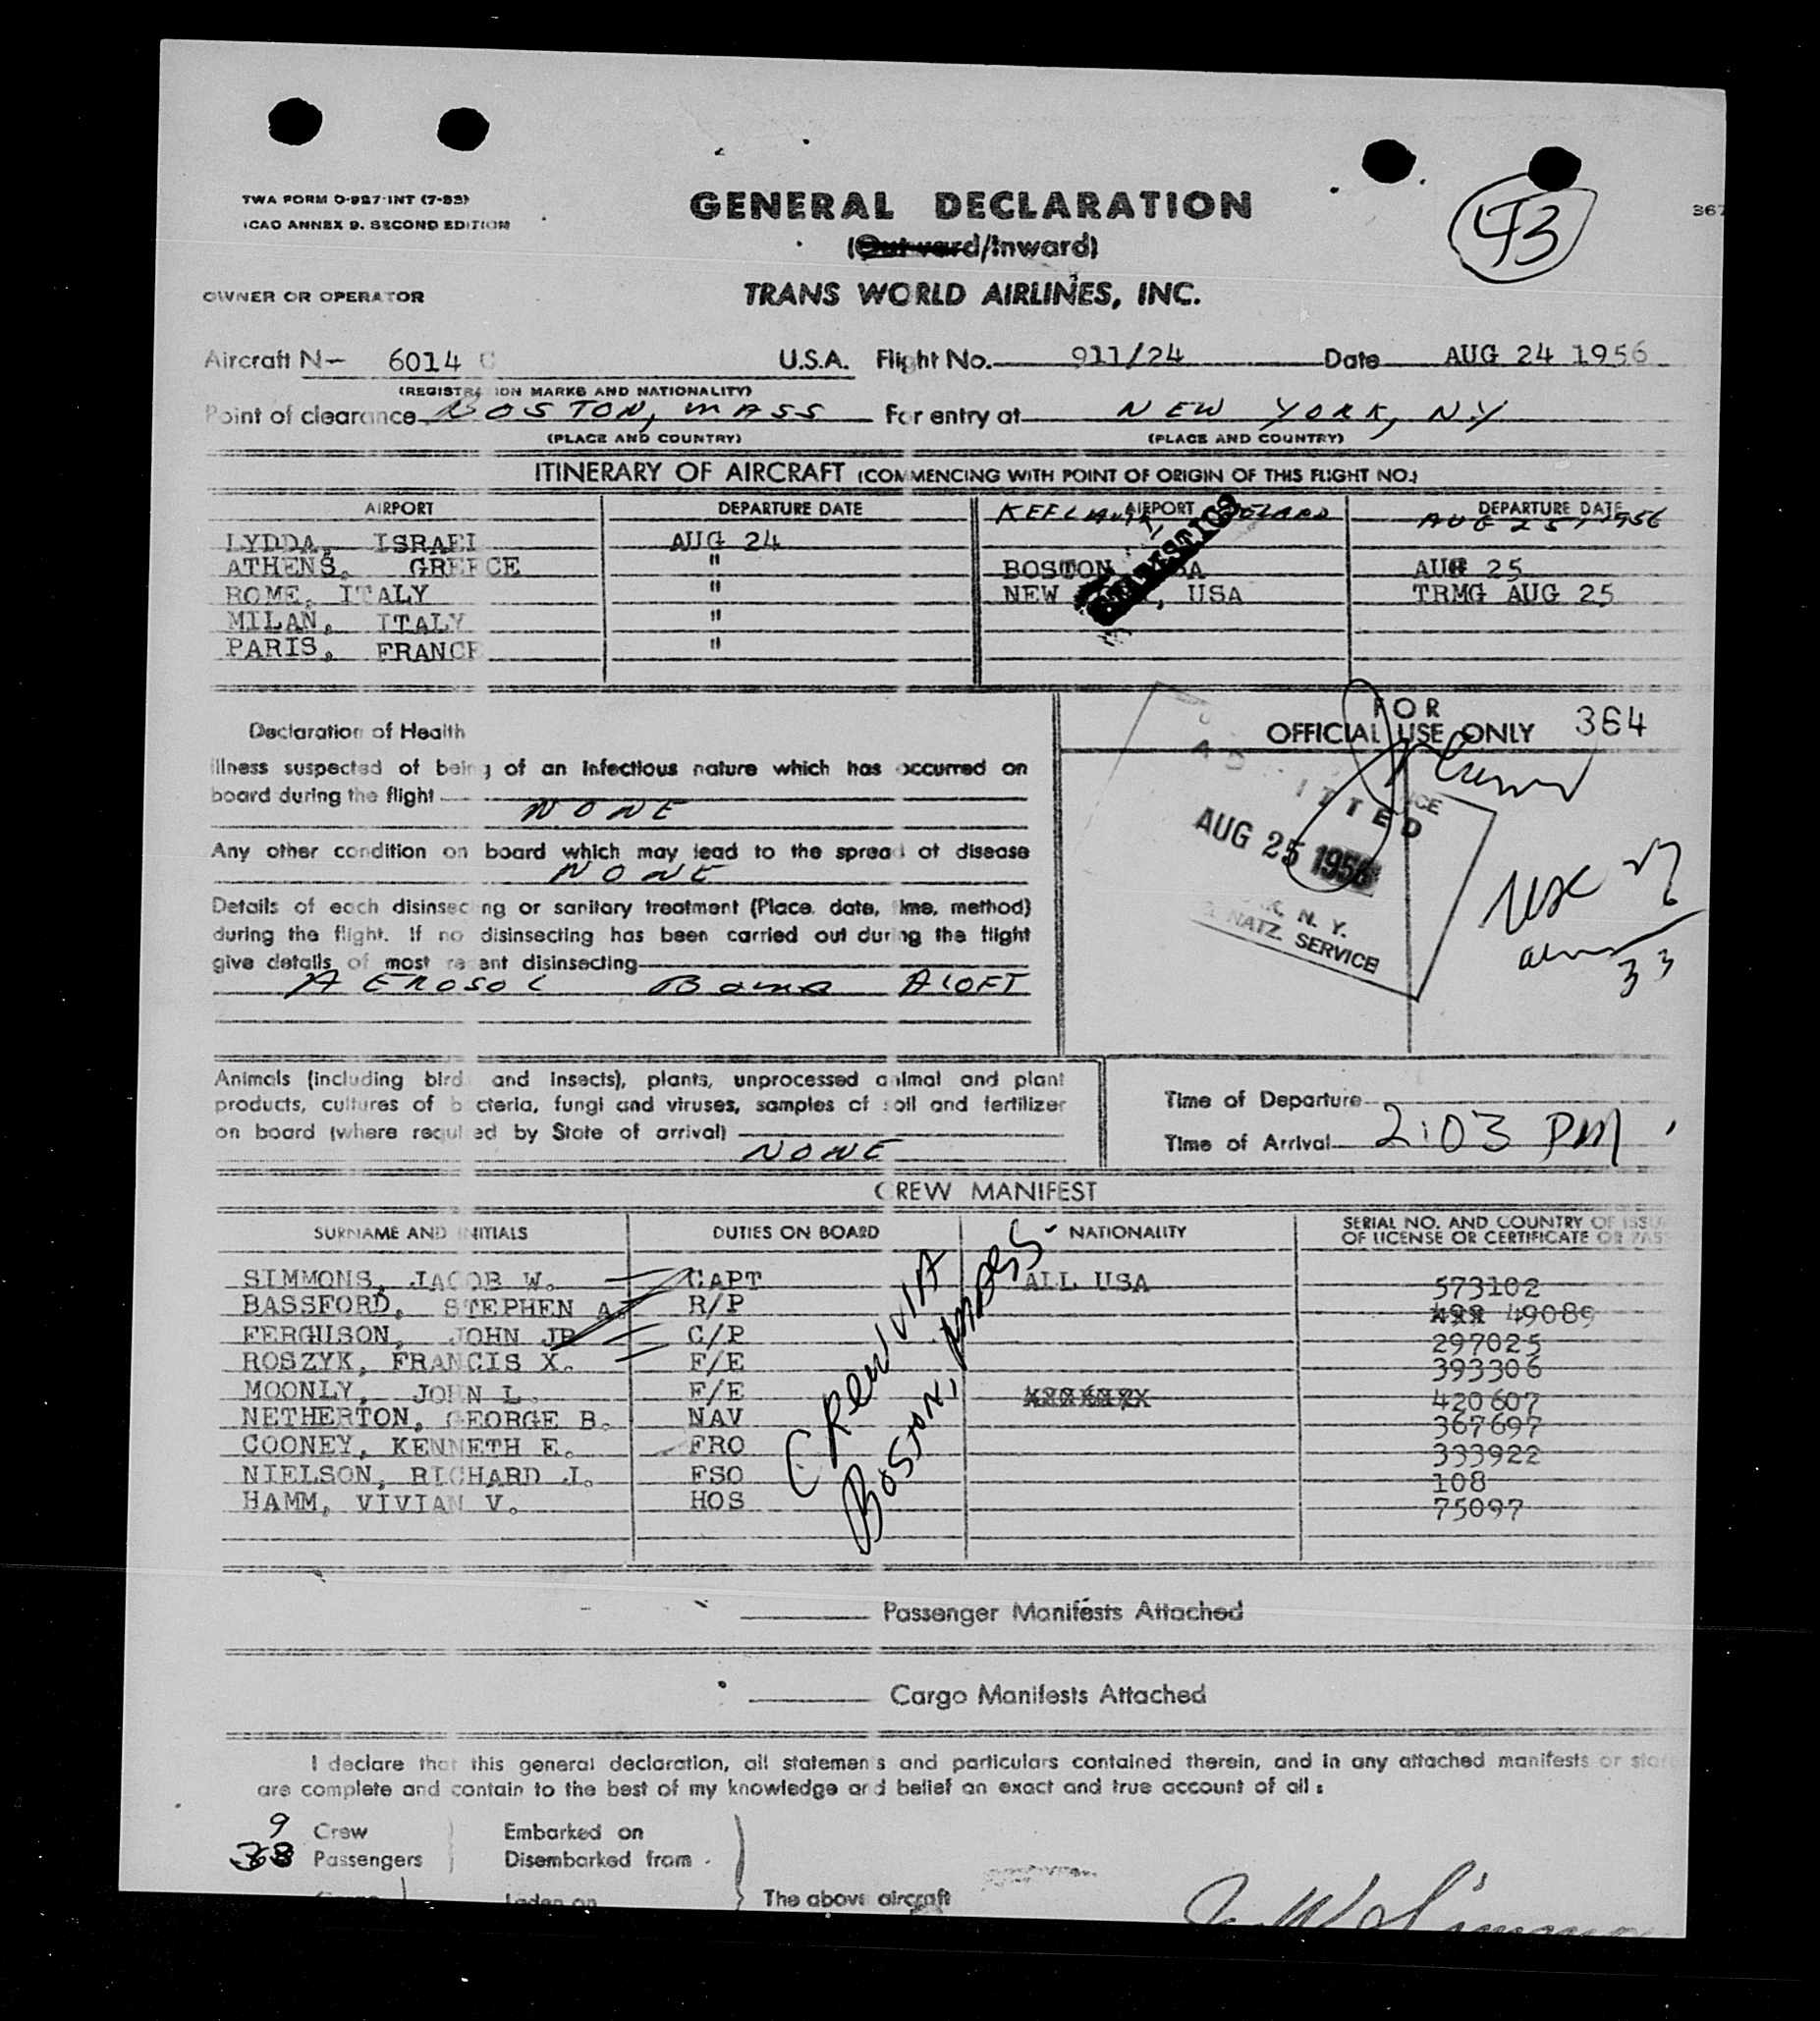 TWA FORM O-927-INT (7-53)
ICAO ANNEX 9. SECOND EDITION
GENERAL DECLARATION
(Outward/Inward)
43
367
OWNER OR OPERATOR
TRANS WORLD AIRLINES, INC.
Aircraft N- 6014 C U.S.A. Flight No. 911/24 Date AUG 24 1956
(REGISTRATION MARKS AND NATIONALITY)
Point of clearance BOSTON, MASS For entry at NEW YORK, N.Y
(PLACE AND COUNTRY) (PLACE AND COUNTRY)
ITINERARY OF AIRCRAFT (COMMENCING WITH POINT OF ORIGIN OF THIS FLIGHT NO.)
AIRPORT DEPARTURE DATE AIRPORT DEPARTURE DATE
AUG 25, 1956
LYDDA, ISRAEL AUG 24
ATHENS, GREECE " BOSTON AUG 25
ROME, ITALY " NEW , USA TRMG AUG 25
MILAN, ITALY "
PARIS, FRANCE "
STATISTICS
Declaration of Health
Illness suspected of being of an infectious nature which has occurred on
board during the flight
NONE
Any other condition on board which may lead to the spread of disease
NONE
Details of each disinsecting or sanitary treatment (Place, date, time, method)
during the flight. If no disinsecting has been carried out during the flight
give details of most recent disinsecting
AEROSOL BOMB ALOFT
FOR
OFFICIAL USE ONLY 364
ADMITTED
AUG 25 1956
N. Y.
NATZ. SERVICE
33
Animals (including birds and insects), plants, unprocessed animal and plant
products, cultures of bacteria, fungi and viruses, samples of soil and fertilizer
on board (where required by State of arrival)
NONE
Time of Departure
Time of Arrival 2:03 PM
CREW MANIFEST
SURNAME AND INITIALS DUTIES ON BOARD NATIONALITY SERIAL NO. AND COUNTRY OF ISSU
OF LICENSE OR CERTIFICATE OR PAS
SIMMONS, JACOB W. CAPT ALL USA 573102
BASSFORD, STEPHEN A. R/P 49089
FERGUSON, JOHN JR C/P 297025
ROSZYK, FRANCIS X. F/E 393306
MOONLY, JOHN L. F/E 420607
NETHERTON, GEORGE B. NAV 367697
COONEY, KENNETH E. FRO 333922
NIELSON, RICHARD J. FSO 108
HAMM, VIVIAN V. HOS 75097
CREW VIA
BOSTON, MASS
Passenger Manifests Attached
Cargo Manifests Attached
I declare that this general declaration, all statements and particulars contained therein, and in any attached manifests or stor
are complete and contain to the best of my knowledge and belief an exact and true account of all :
9 Crew Embarked on
38 Passengers Disembarked from
Laden on The above aircraft
J W Simmons